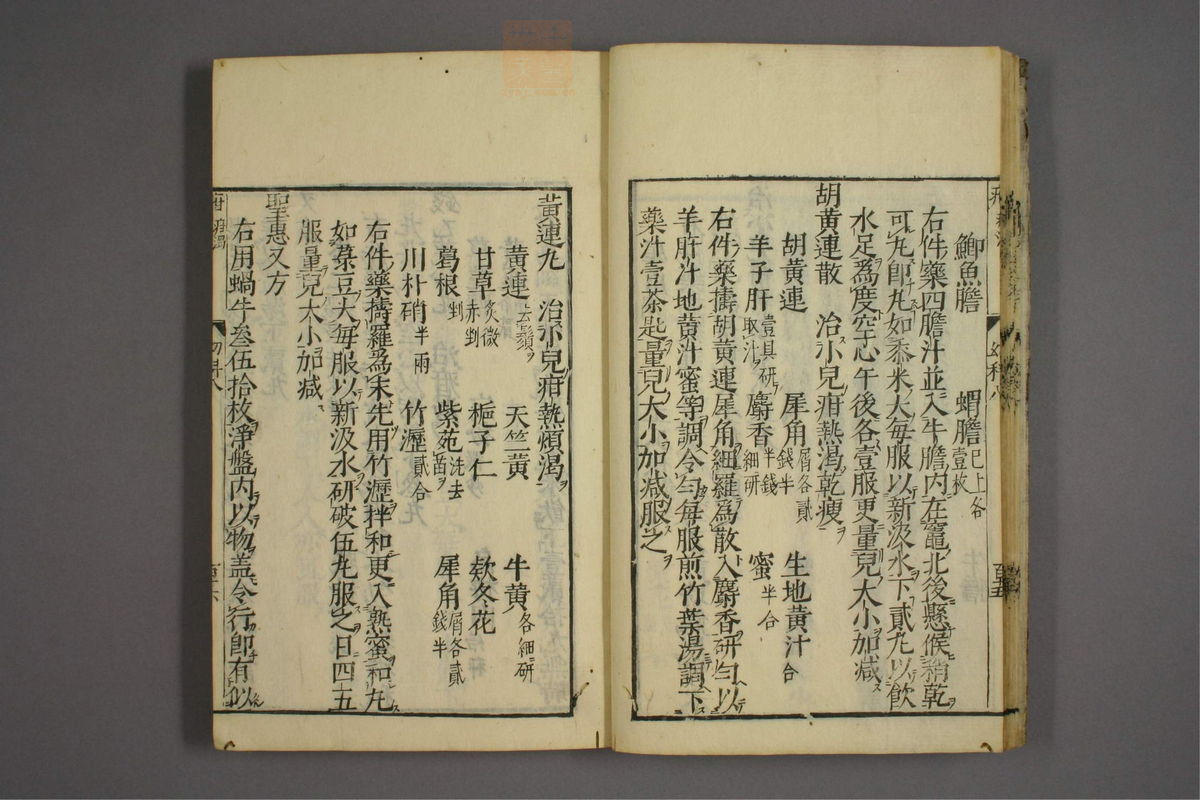 鯽魚膽　蝟膽已上各壹枚
右件藥四膽汁並入牛膽內在竈北後懸候稍乾
可丸卽丸如黍米大每服以新汲水下貳丸以飮
水足爲度空心午後各壹服更量兒大小加减
胡黃連散　治小兒疳熱渴乾瘦
胡黃連　犀角屑各貳錢半　生地黃汁合
羊子肝壹具研取汁　麝香半錢細研　蜜半合
右件藥擣胡黃連犀角細羅爲散入麝香硏勻以
羊肝汁地黃汁蜜等調令勻每服煎竹葉湯調下
藥汁壹茶匙量兒大小加减服之
黃連丸　治小兒疳熱煩渴
黃連去鬚　天竺黃　牛黃各細研
甘草炙微赤剉　梔子仁　欵冬花
葛根剉　紫苑洗去苗　犀角屑各貳錢半
川朴硝半兩　竹瀝貳合
右件藥擣羅爲末先用竹瀝拌和更入熟蜜和丸
如菉豆大每服以新汲水硏破伍丸服之日四五
服量兒大小加减
聖惠又方
右用蝸牛叄伍拾枚淨盤內以物盖令行卽有似